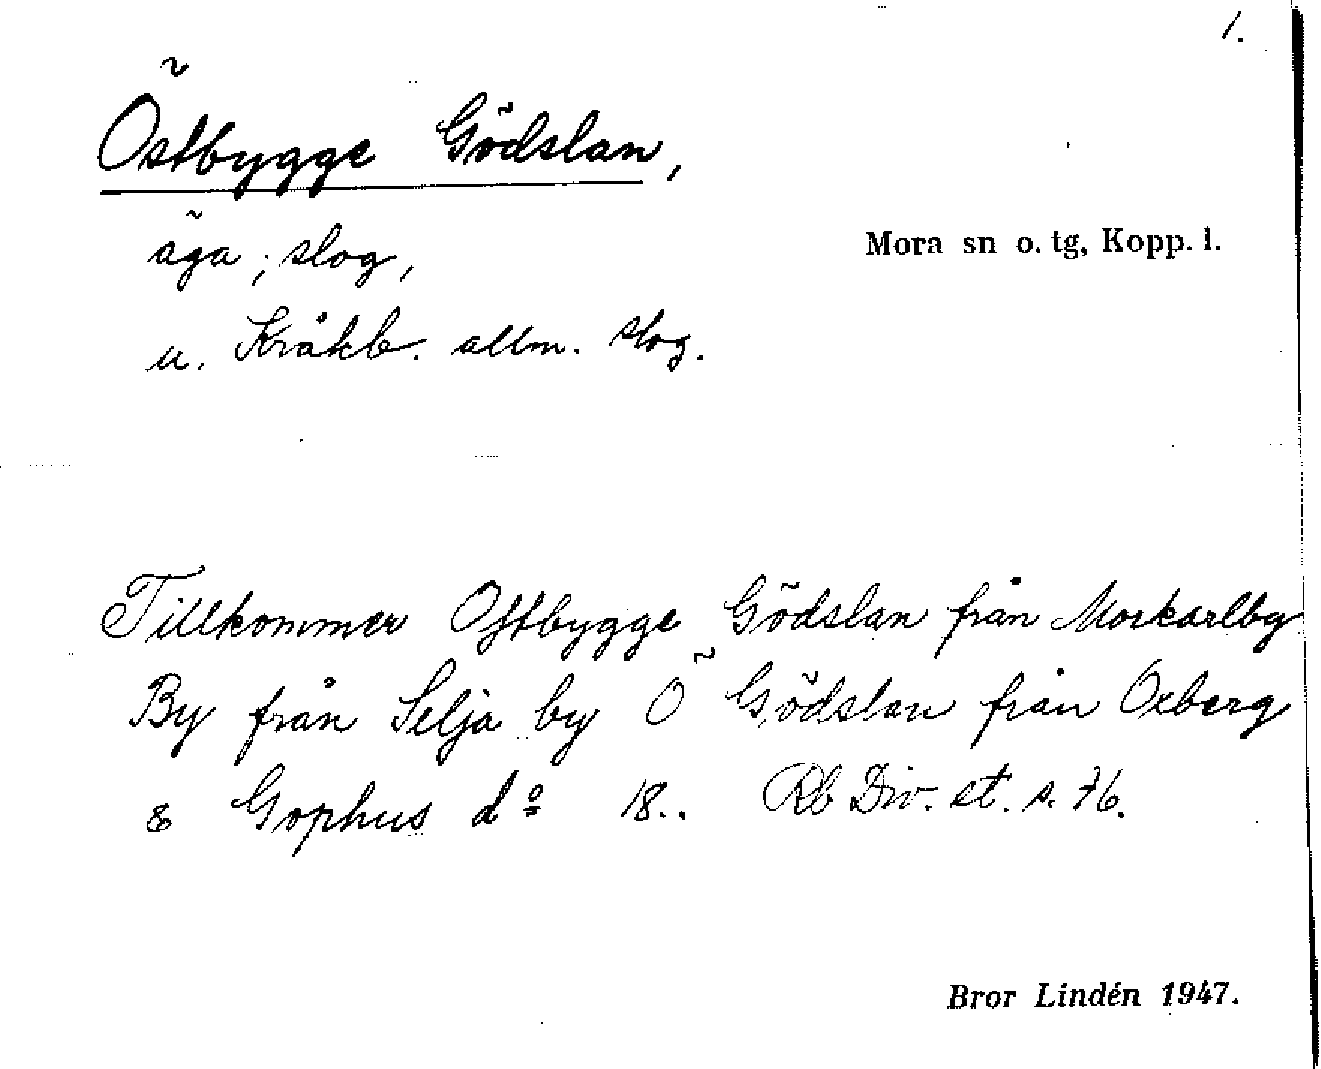 1.
Östbygge Gödslan,
äga; slog,
Mora sn o. tg, Kopp. l.
u. Kråkb. allm. slog.
Tillkommer Ostbygge Gödslan från Morkarlby
By från Selja by Ö Gödslan från Oxberg
& Gophus do 18.. Rb Div. st. s. 76.
Bror Lindén 1947.